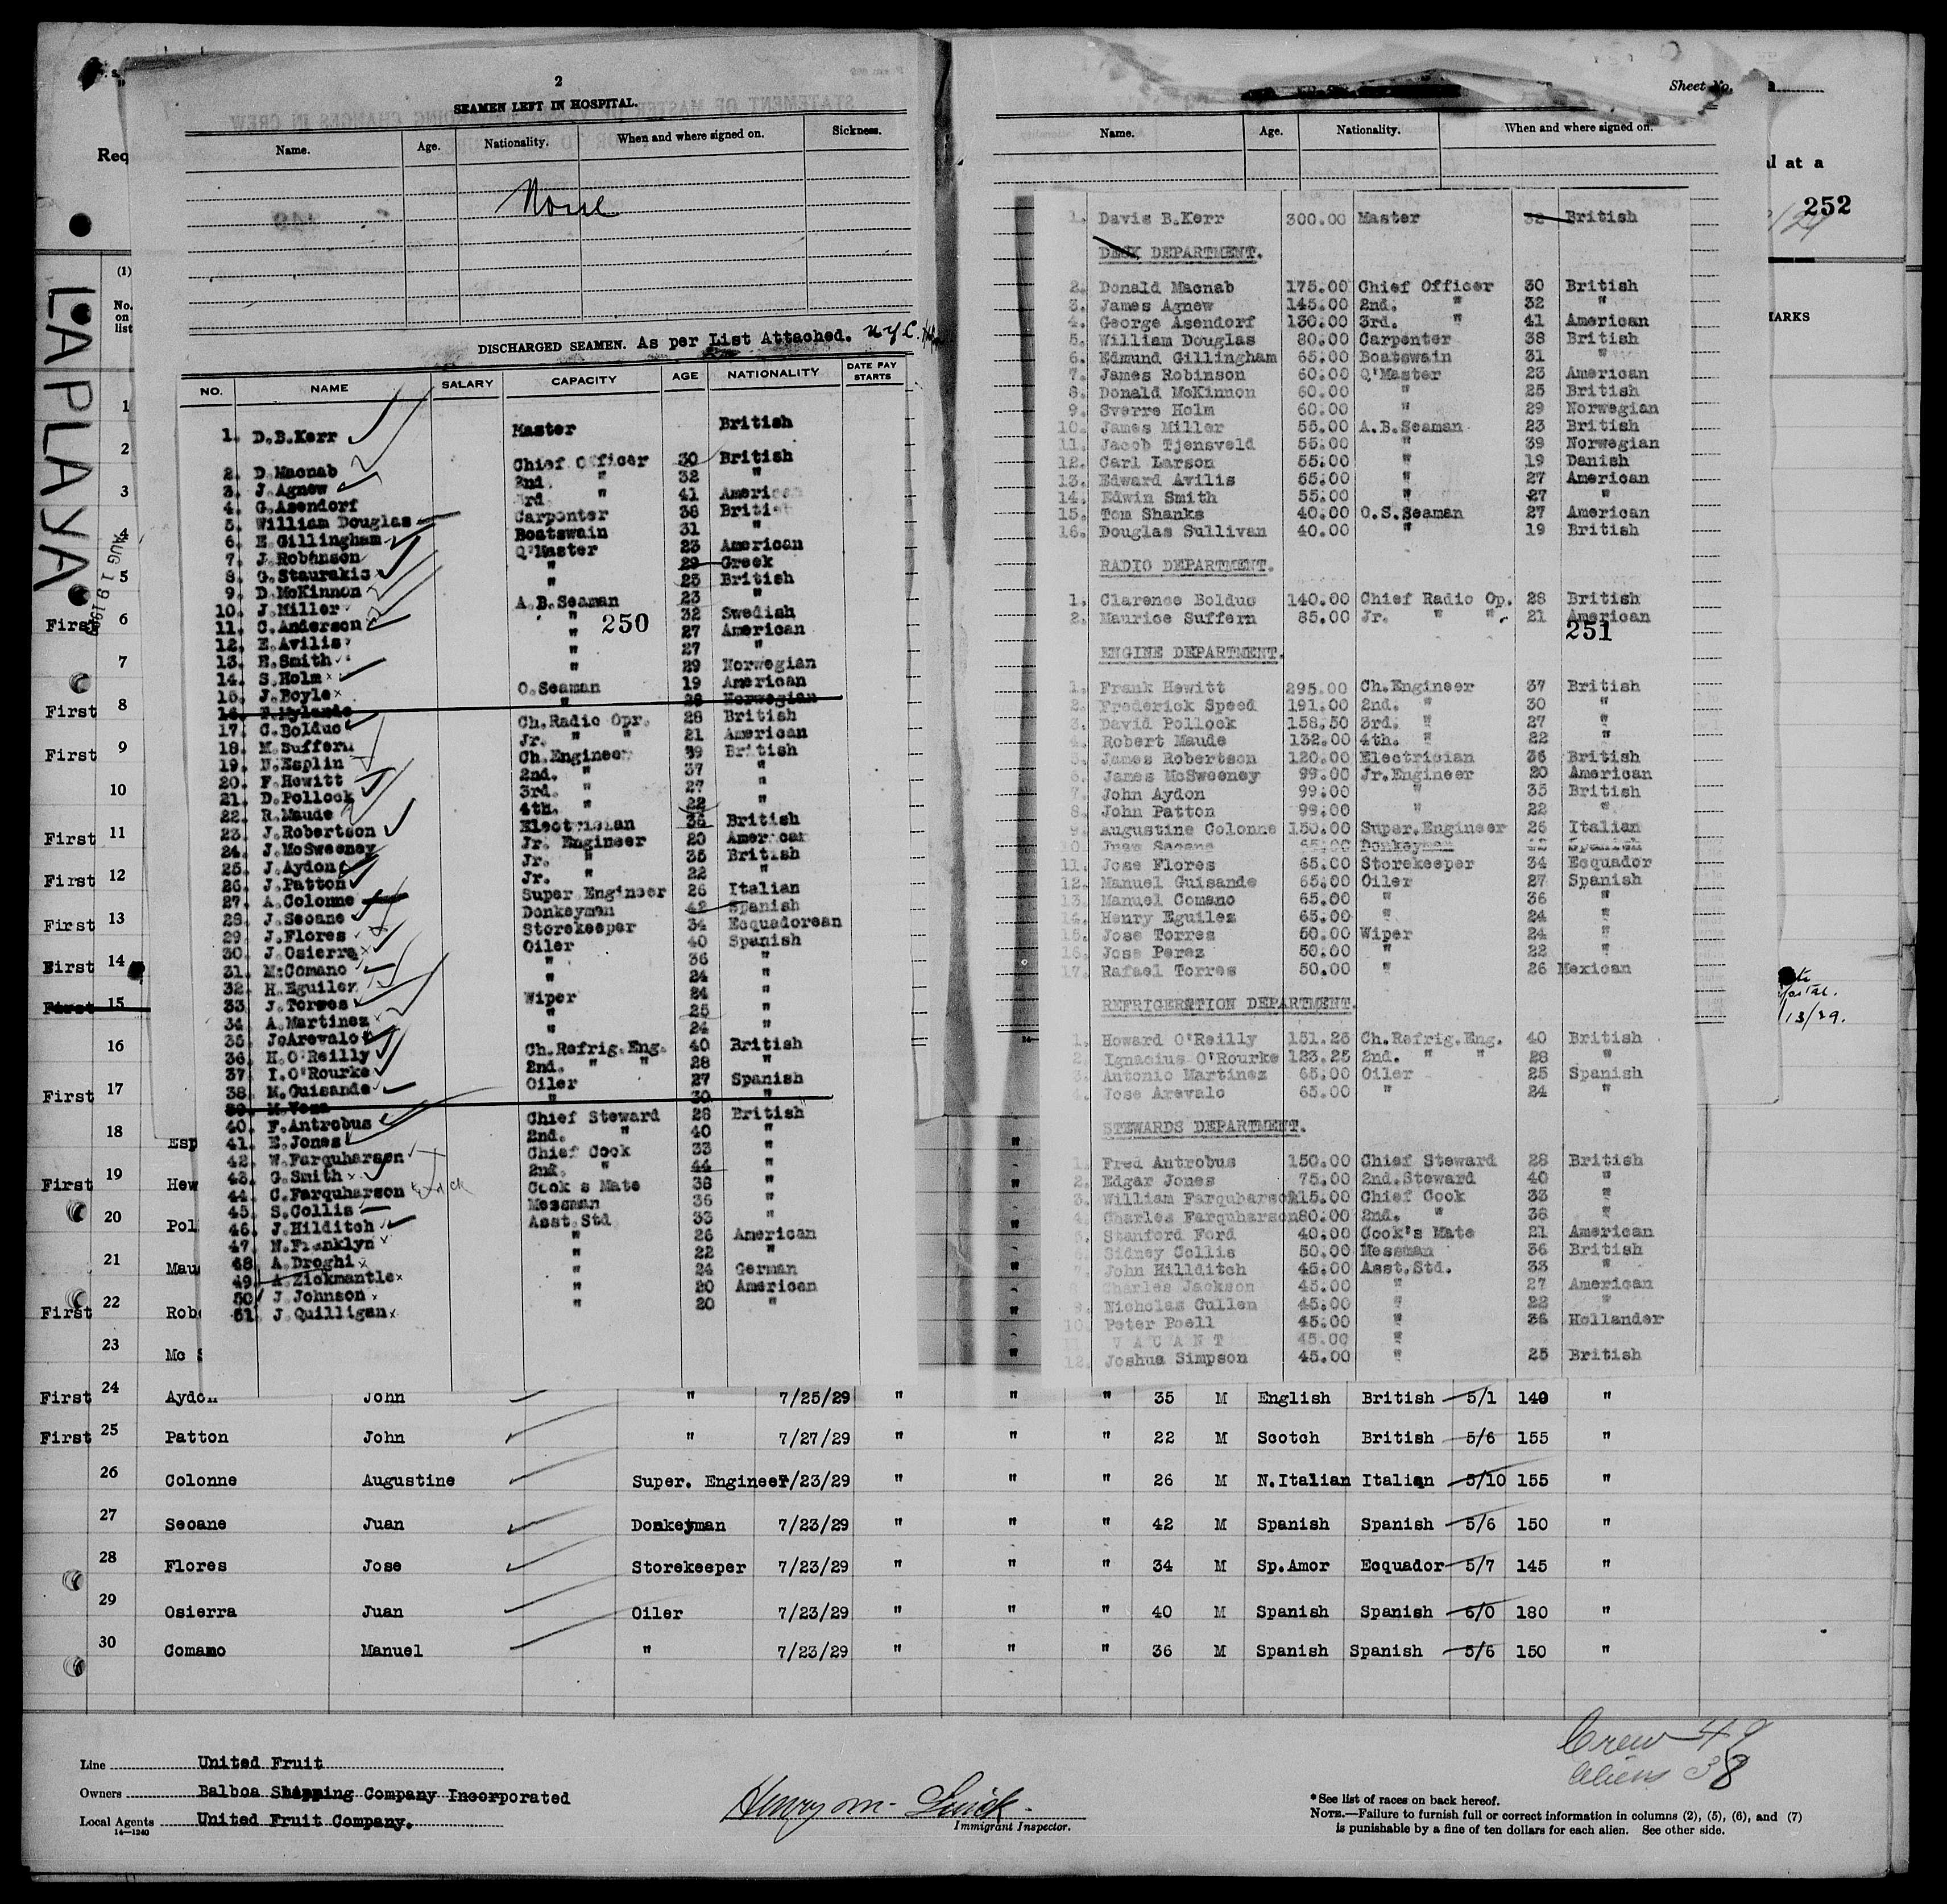 2
SEAMEN LEFT IN HOSPITAL.
Name. Age. Nationality. When and where signed on. Sickness.
None
DISCHARGED SEAMEN. As per List Attached. N.Y.C.
NO. NAME SALARY CAPACITY AGE NATIONALITY DATE PAY STARTS
1. D.B.Kerr Master British
2. D.Macnab Chief Officer 30 British
3. J.Agnew 2nd. " 32 "
4. G.Asendorf 3rd " 41 American
5. William Douglas Carpenter 38 British
6. E.Gillingham Boatswain 31 "
7. J.Robinson Q'Master 23 American
8. G.Staurakis " 29 Greek
9. D.McKinnon " 25 British
10. J.Miller A.B.Seaman 23 "
11. C.Anderson " 32 Swedish
12. E.Avilis " 27 American
13. E.Smith " 27 "
14. S.Holm " 29 Norwegian
15. J.Boyle O.Seaman 19 American
16. P.Nylande " 28 Norwegian
17. C.Bolduc Ch.Radio Opr. 28 British
18. M.Suffern Jr. " " 21 American
19. N.Esplin Ch.Engineer 39 British
20. F.Hewitt 2nd. " 37 "
21. D.Pollock 3rd. " 27 "
22. R.Maude 4th. " 22 "
23. J.Robertson Electrician 36 British
24. J.McSweeney Jr. Engineer 20 American
25. J.Aydon Jr. " 35 British
26. J.Patton Jr. " 22 "
27. A.Colonne Super Engineer 26 Italian
28. J.Seoane Donkeyman 42 Spanish
29. J.Flores Storekeeper 34 Ecquadorean
30. J.Osierra Oiler 40 Spanish
31. M.Comano " 36 "
32. H.Eguilez " 24 "
33. J.Torres Wiper 24 "
34. A.Martinez " 25 "
35. JoArevalo " 24 "
36. H.O'Reilly Ch.Refrig.Eng. 40 British
37. I.O'Rourke 2nd. " " 28 "
38. M.Guisande Oiler 27 Spanish
39. M.Vega " 30 "
40. F.Antrobus Chief Steward 28 British
41. E.Jones 2nd. " 40 "
42. W.Farquharson Chief Cook 33 "
43. G.Smith 2nd. " 44 "
44. C.Farquharson Cook s Mate 38 "
45. S.Collis Messman 36 "
46. J.Hilditch Asst.Std 33 "
47. N.Franklyn " 26 American
48. A.Droghi " 22 "
49. A.Zickmantle " 24 German
50. J.Johnson " 20 American
51. J.Quilligan " 20 "
250
Sheet No.
Name. Age. Nationality. When and where signed on.
1. Davis B.Kerr 300.00 Master 32 British
DECK DEPARTMENT.
2. Donald Macnab 175.00 Chief Officer 30 British
3. James Agnew 145.00 2nd. " 32 "
4. George Asendorf 130.00 3rd. " 41 American
5. William Douglas 80.00 Carpenter 38 British
6. Edmund Gillingham 65.00 Boatswain 31 "
7. James Robinson 60.00 Q'Master 23 American
8. Donald McKinnon 60.00 " 25 British
9. Sverre Holm 60.00 " 29 Norwegian
10. James Miller 55.00 A.B.Seaman 23 British
11. Jacob Tjensveld 55.00 " 39 Norwegian
12. Carl Larson 55.00 " 19 Danish
13. Edward Avilis 55.00 " 27 American
14. Edwin Smith 55.00 " 27 "
15. Tom Shanks 40.00 O.S.Seaman 27 American
16. Douglas Sullivan 40.00 " 19 British
RADIO DEPARTMENT.
1. Clarence Bolduc 140.00 Chief Radio Op. 28 British
2. Maurice Suffern 85.00 Jr. " " 21 American
251
ENGINE DEPARTMENT.
1. Frank Hewitt 295.00 Ch.Engineer 37 British
2. Frederick Speed 191.00 2nd. " 30 "
3. David Pollock 158.50 3rd. " 27 "
4. Robert Maude 132.00 4th. " 22 "
5. James Robertson 120.00 Electrician 36 British
6. James McSweeney 99.00 Jr.Engineer 20 American
7. John Aydon 99.00 " 35 British
8. John Patton 99.00 " 22 "
9. Augustine Colonne 150.00 Super.Engineer 26 Italian
10. Juan Seoane 65.00 Donkeyman 42 Spanish
11. Jose Flores 65.00 Storekeeper 34 Ecquador
12. Manuel Guisande 65.00 Oiler 27 Spanish
13. Manuel Comano 65.00 " 36 "
14. Henry Eguilez 65.00 " 24 "
15. Jose Torres 50.00 Wiper 24 "
16. Jose Perez 50.00 " 22 "
17. Rafael Torres 50.00 " 26 Mexican
REFRIGERTION DEPARTMENT.
1. Howard O'Reilly 151.25 Ch.Refrig.Eng. 40 British
2. Ignacius O'Rourke 123.25 2nd. " " 28 "
3. Antonio Martinez 65.00 Oiler 25 Spanish
4. Jose Arevalo 65.00 " 24 "
STEWARDS DEPARTMENT.
1. Fred Antrobus 150.00 Chief Steward 28 British
2. Edgar Jones 75.00 2nd.Steward 40 "
3. William Farquharson 115.00 Chief Cook 33 "
4. Charles Farquharson 80.00 2nd. " 38 "
5. Stanford Ford 40.00 Cook's Mate 21 American
6. Sidney Collis 50.00 Messman 36 British
7. John Hillditch 45.00 Asst.Std. 33 "
Charles Jackson 45.00 " 27 American
9. Nicholas Cullen 45.00 " 22 "
10. Peter Poell 45.00 " 36 Hollander
V A C A N T 45.00 "
12. Joshua Simpson 45.00 " 25 British
Req
al at a
252
MARKS
LA PLAYA
AUG 19 19
(1)
No. on list
1
2
3
4
5
First 6
7
First 8
First 9
10
First 11
First 12
First 13
First 14
First 15
16
First 17
18 Esp
First 19 Hew
20 Pol
21 Mau
First 22 Rob
23 Mc
First 24 Aydon John " 7/25/29 " " " 35 M English British 5/1 140 "
First 25 Patton John " 7/27/29 " " " 22 M Scotch British 5/6 155 "
26 Colonne Augustine Super. Engineer 7/23/29 " " " 26 M N.Italian Italian 5/10 155 "
27 Seoane Juan Donkeyman 7/23/29 " " " 42 M Spanish Spanish 5/6 150 "
28 Flores Jose Storekeeper 7/23/29 " " " 34 M Sp.Amer Ecquador 5/7 145 "
29 Osierra Juan Oiler 7/23/29 " " " 40 M Spanish Spanish 6/0 180 "
30 Comamo Manuel " 7/23/29 " " " 36 M Spanish Spanish 5/6 150 "
Crew 49
Aliens 38
Line United Fruit
Owners Balboa Shipping Company Incorporated
Local Agents United Fruit Company.
14—1240
Immigrant Inspector.
*See list of races on back hereof.
NOTE.—Failure to furnish full or correct information in columns (2), (5), (6), and (7)
is punishable by a fine of ten dollars for each alien. See other side.